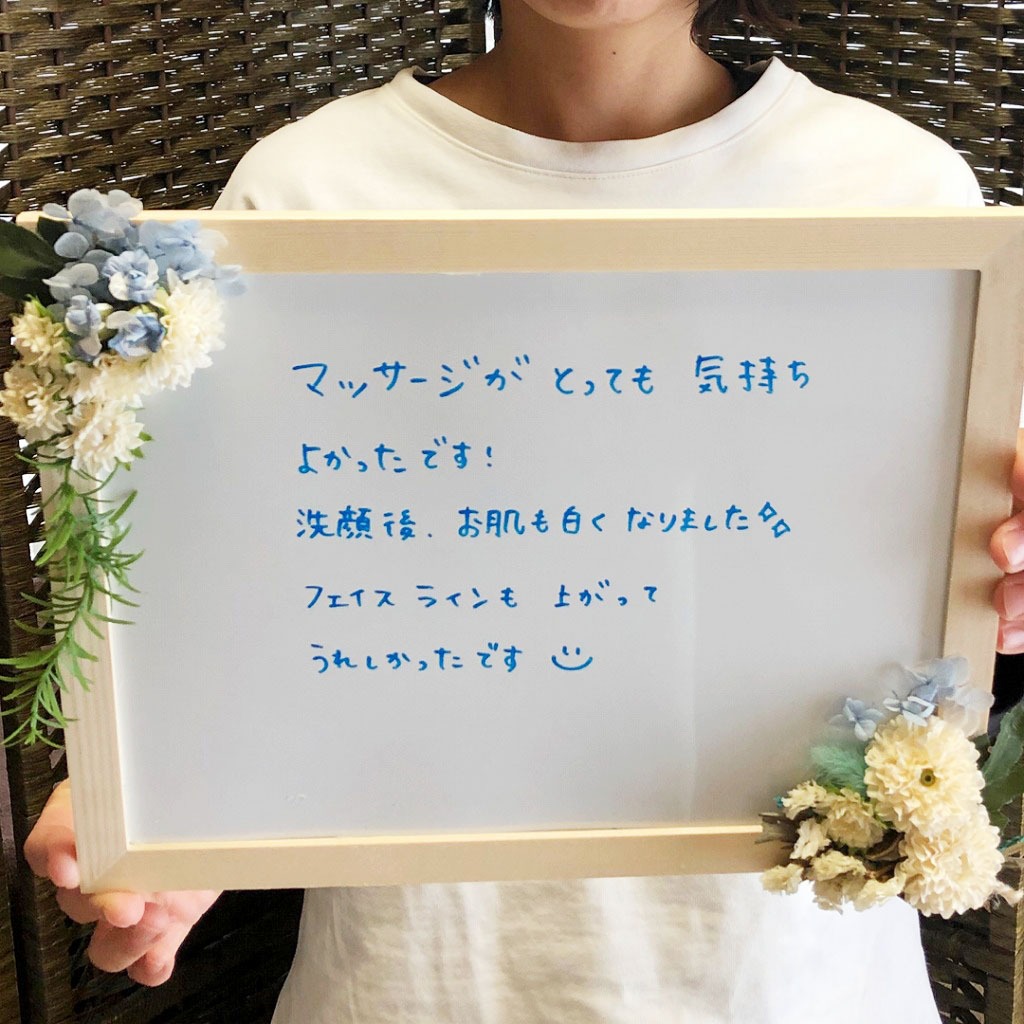 マッサージが とっても 気持ち
よかったです!
洗顔後、お肌も白く なりました
フェイス ラインも 上がって
うれしかったです